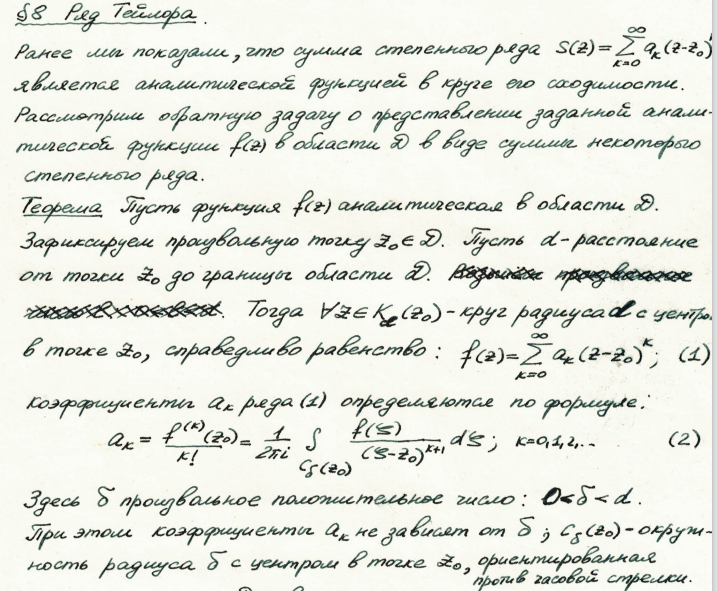 §8 Ряд Тейлора.
Ранее мы показали, что сумма степенного ряда S(z)=∑_{k=0}^{∞} a_k(z-z_0)
является аналитической функцией в круге его сходимости.
Рассмотрим обратную задачу о представлении заданной анали-
тической функции f(z) в области D в виде суммы некоторого
степенного ряда.
Теорема Пусть функция f(z) аналитическая в области D.
Зафиксируем произвольную точку z_0∈D. Пусть d-расстояние
от точки z_0 до границы области D.
Тогда ∀z∈K_d(z_0)-круг радиуса d с центро
в точке z_0, справедливо равенство: f(z)=∑_{k=0}^{∞} a_k(z-z_0)^k; (1)
коэффициенты a_k ряда (1) определяются по формуле:
a_k = f^{(k)}(z_0)/k! = 1/2πi ∫_{C_δ(z_0)} f(ξ)/(ξ-z_0)^{k+1} dξ; k=0,1,2,... (2)
Здесь δ произвольное положительное число: 0<δ<d.
При этом коэффициенты a_k не зависят от δ; C_δ(z_0)-окруж-
ность радиуса δ с центром в точке z_0, ориентированная
против часовой стрелки.